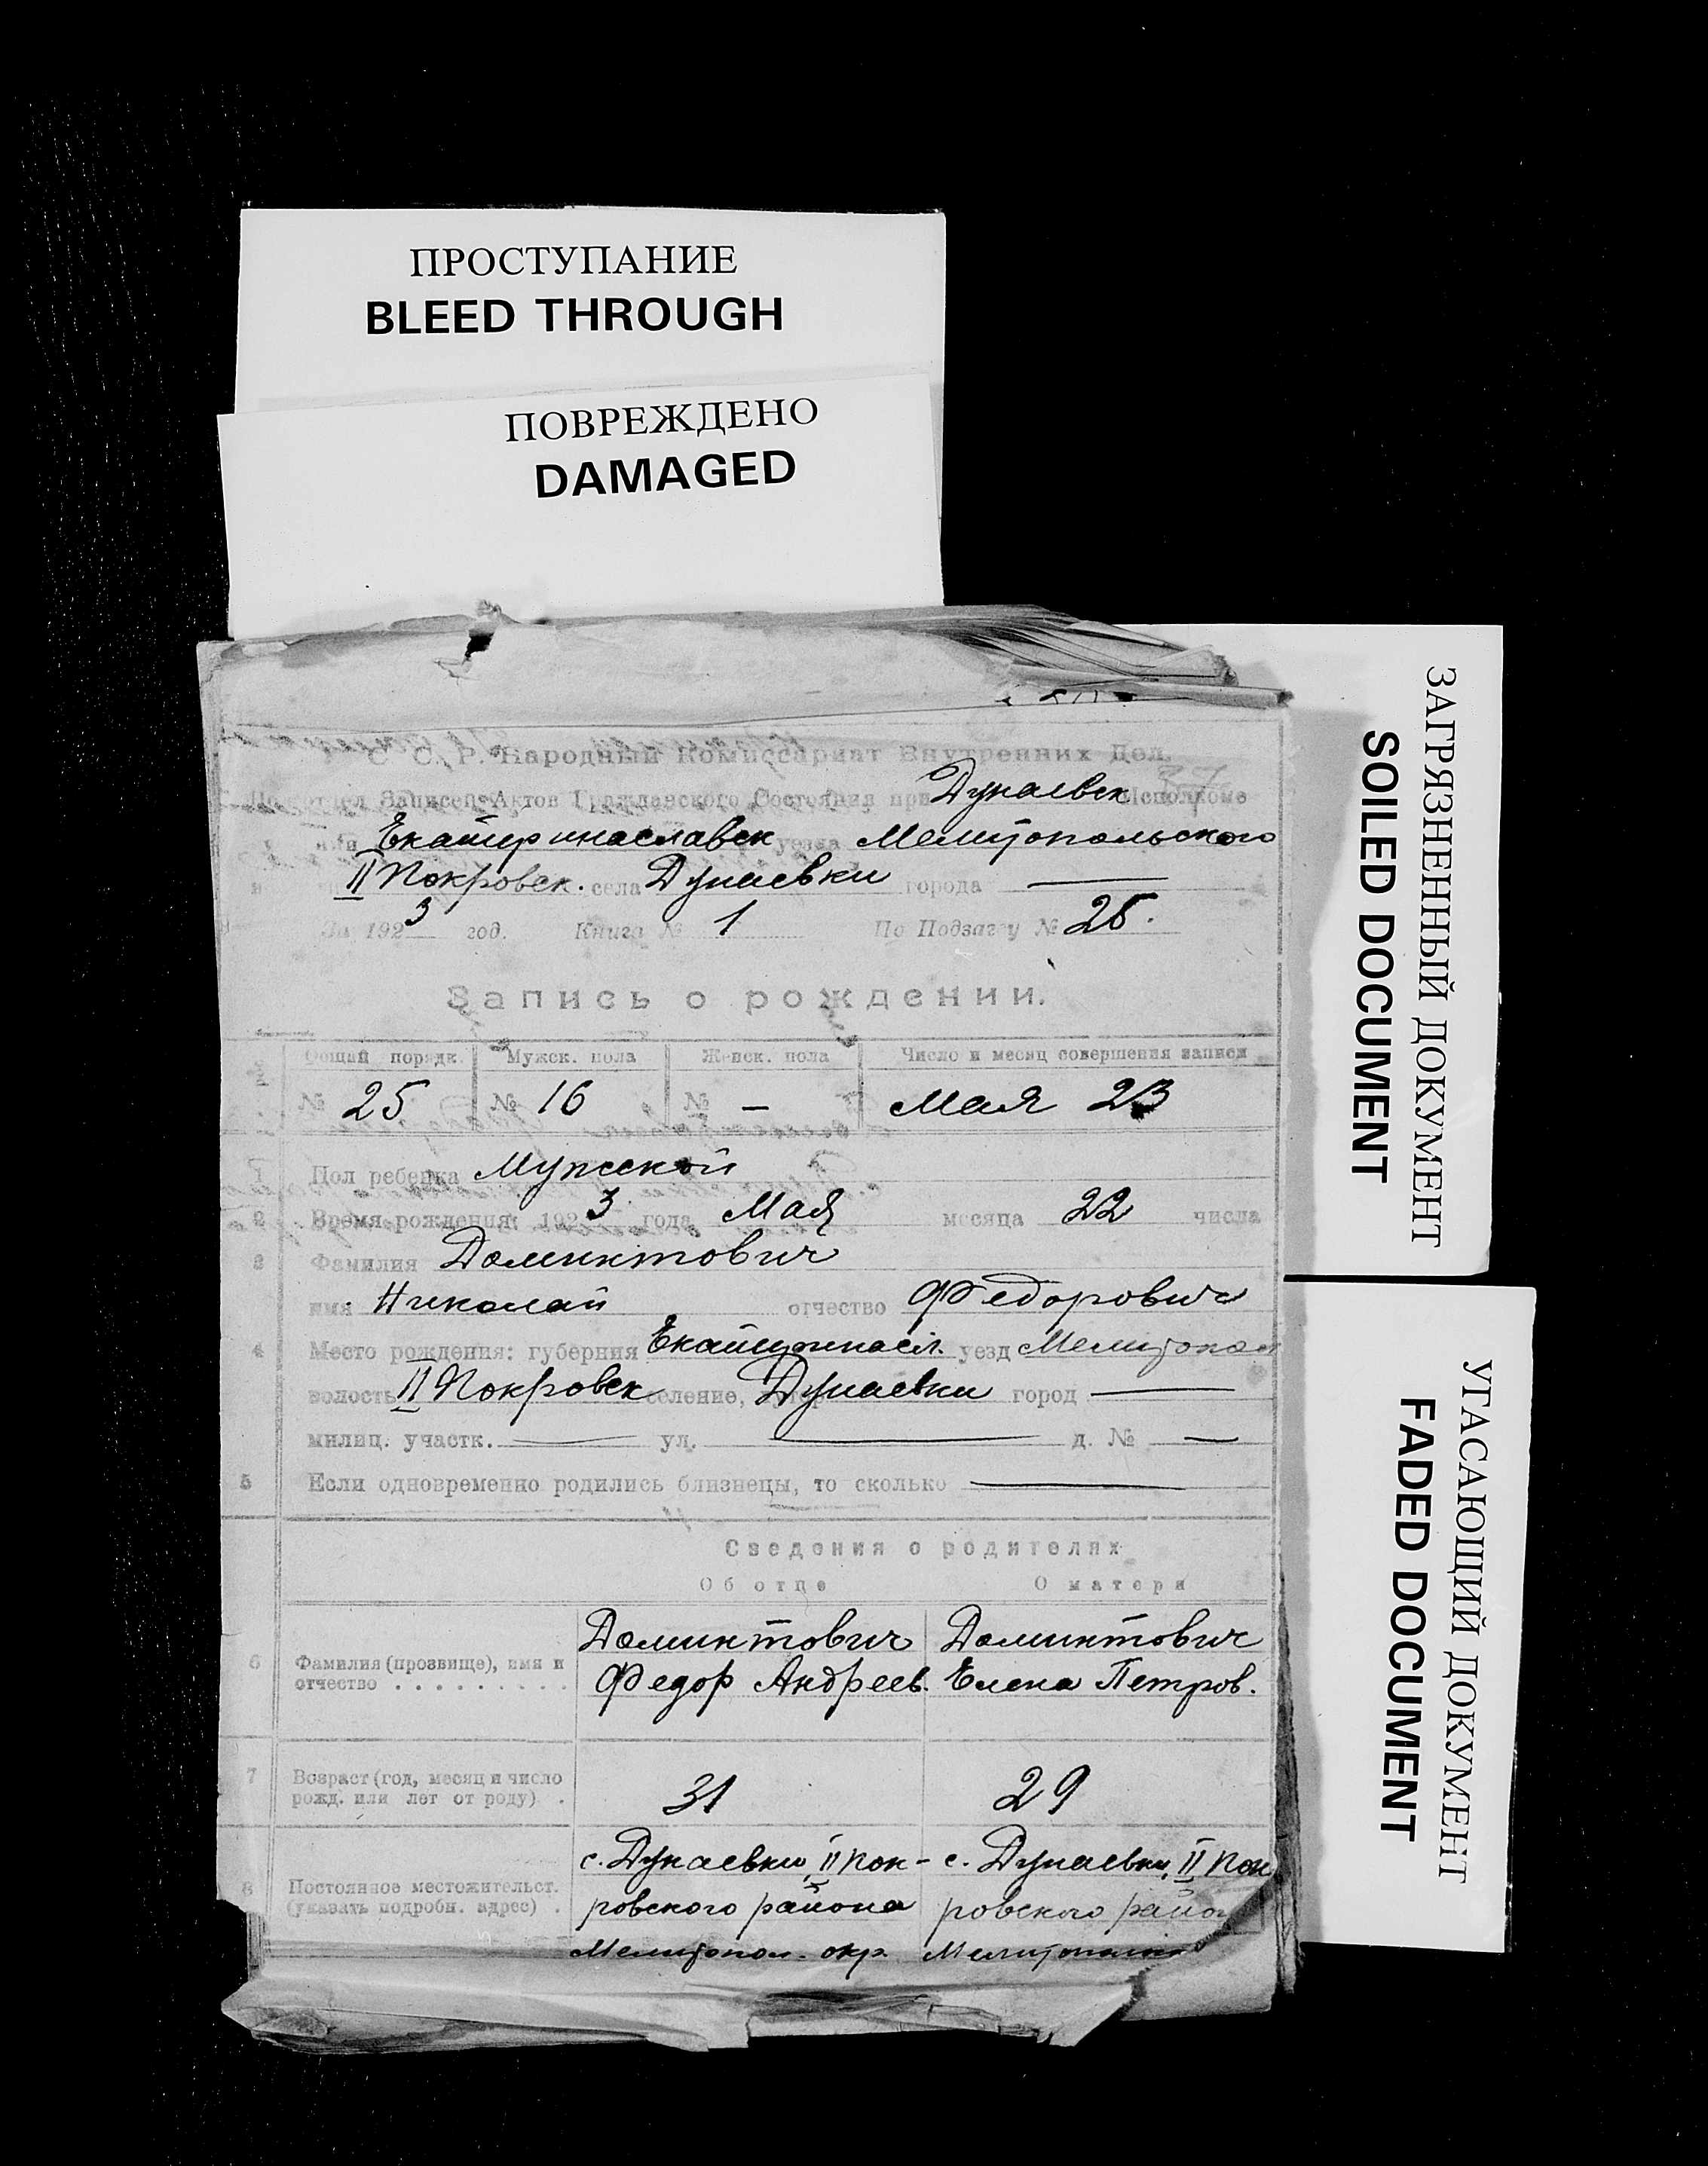 ПРОСТУПАНИЕ
BLEED THROUGH
ПОВРЕЖДЕНО
DAMAGED
С. С. Р. Народный Комиссариат Внутренних Дел.
Записей Актов Гражданского Состояния при Дунаевск. Исполкоме
37
Екатеринаславск уезда Мелитопольского
II Покровск. села Дунаевки города —
За 1923 год. Книга № 1 По Подзагсу № 25.
Запись о рождении.
Общий порядк. Мужск. пола Женск. пола Число и месяц совершения записи
№ 25 № 16 № — Мая 23
1 Пол ребенка Мужской
2 Время рождения: 1923 года Мая месяца 22 числа
3 Фамилия Доминтович
имя Николай отчество Федорович
4 Место рождения: губерния Екатеринасл. уезд Мелитопол
волость II Покровск селение, Дунаевки город —
милиц. участк. — ул. — д. № —
5 Если одновременно родились близнецы, то сколько —
Сведения о родителях
Об отце О матери
6 Фамилия (прозвище), имя и отчество . . . . . . . . . Доминтович Доминтович
Федор Андреев. Елена Петров.
7 Возраст (год, месяц и число рожд. или лет от роду) . 31 29
8 Постоянное местожительст. (указать подробн. адрес) . с. Дунаевки, II Пок- с. Дунаевки, II Пок
ровского района ровского район
Мелитопол. окр. Мелитополь
ЗАГРЯЗНЕННЫЙ ДОКУМЕНТ
SOILED DOCUMENT
УГАСАЮЩИЙ ДОКУМЕНТ
FADED DOCUMENT